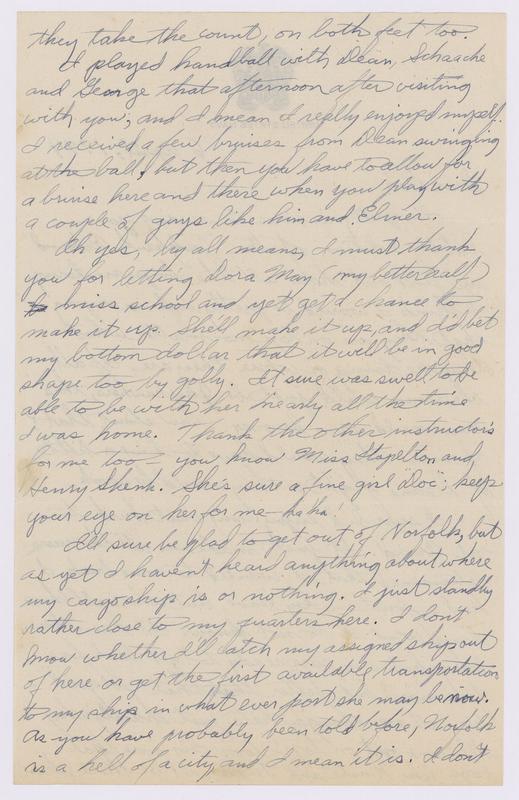 they take the count, on both feet too.
I played handball with Dean, Schaake
and George that afternoon after visiting
with you, and I mean I really enjoyed myself.
I received a few bruises from Dean swinging
at the ball, but then you have to allow for
a bruise here and there when you play with
a couple of guys like him and Elmer.
Oh yes, by all means, I must thank
you for letting Dora May (my better half)
miss school and yet get a chance to
make it up. She'll make it up, and I'd bet
my bottom dollar that it will be in good
shape too by golly. It sure was swell to be
able to be with her nearly all the time
I was home. Thank the other instructors
for me too – you know Miss Stapelton and
Henry Shenk. She's sure a fine girl "doc"; keep
your eye on her for me – ha ha!
I'll sure be glad to get out of Norfolk, but
as yet I haven't heard anything about where
my cargo ship is or nothing. I just standby
rather close to my quarters here. I don't
know whether I'll catch my assigned ship out
of here or get the first available transportation
to my ship in what ever port she may be now.
As you have probably been told before, Norfolk
is a hell of a city, and I mean it is. I don't